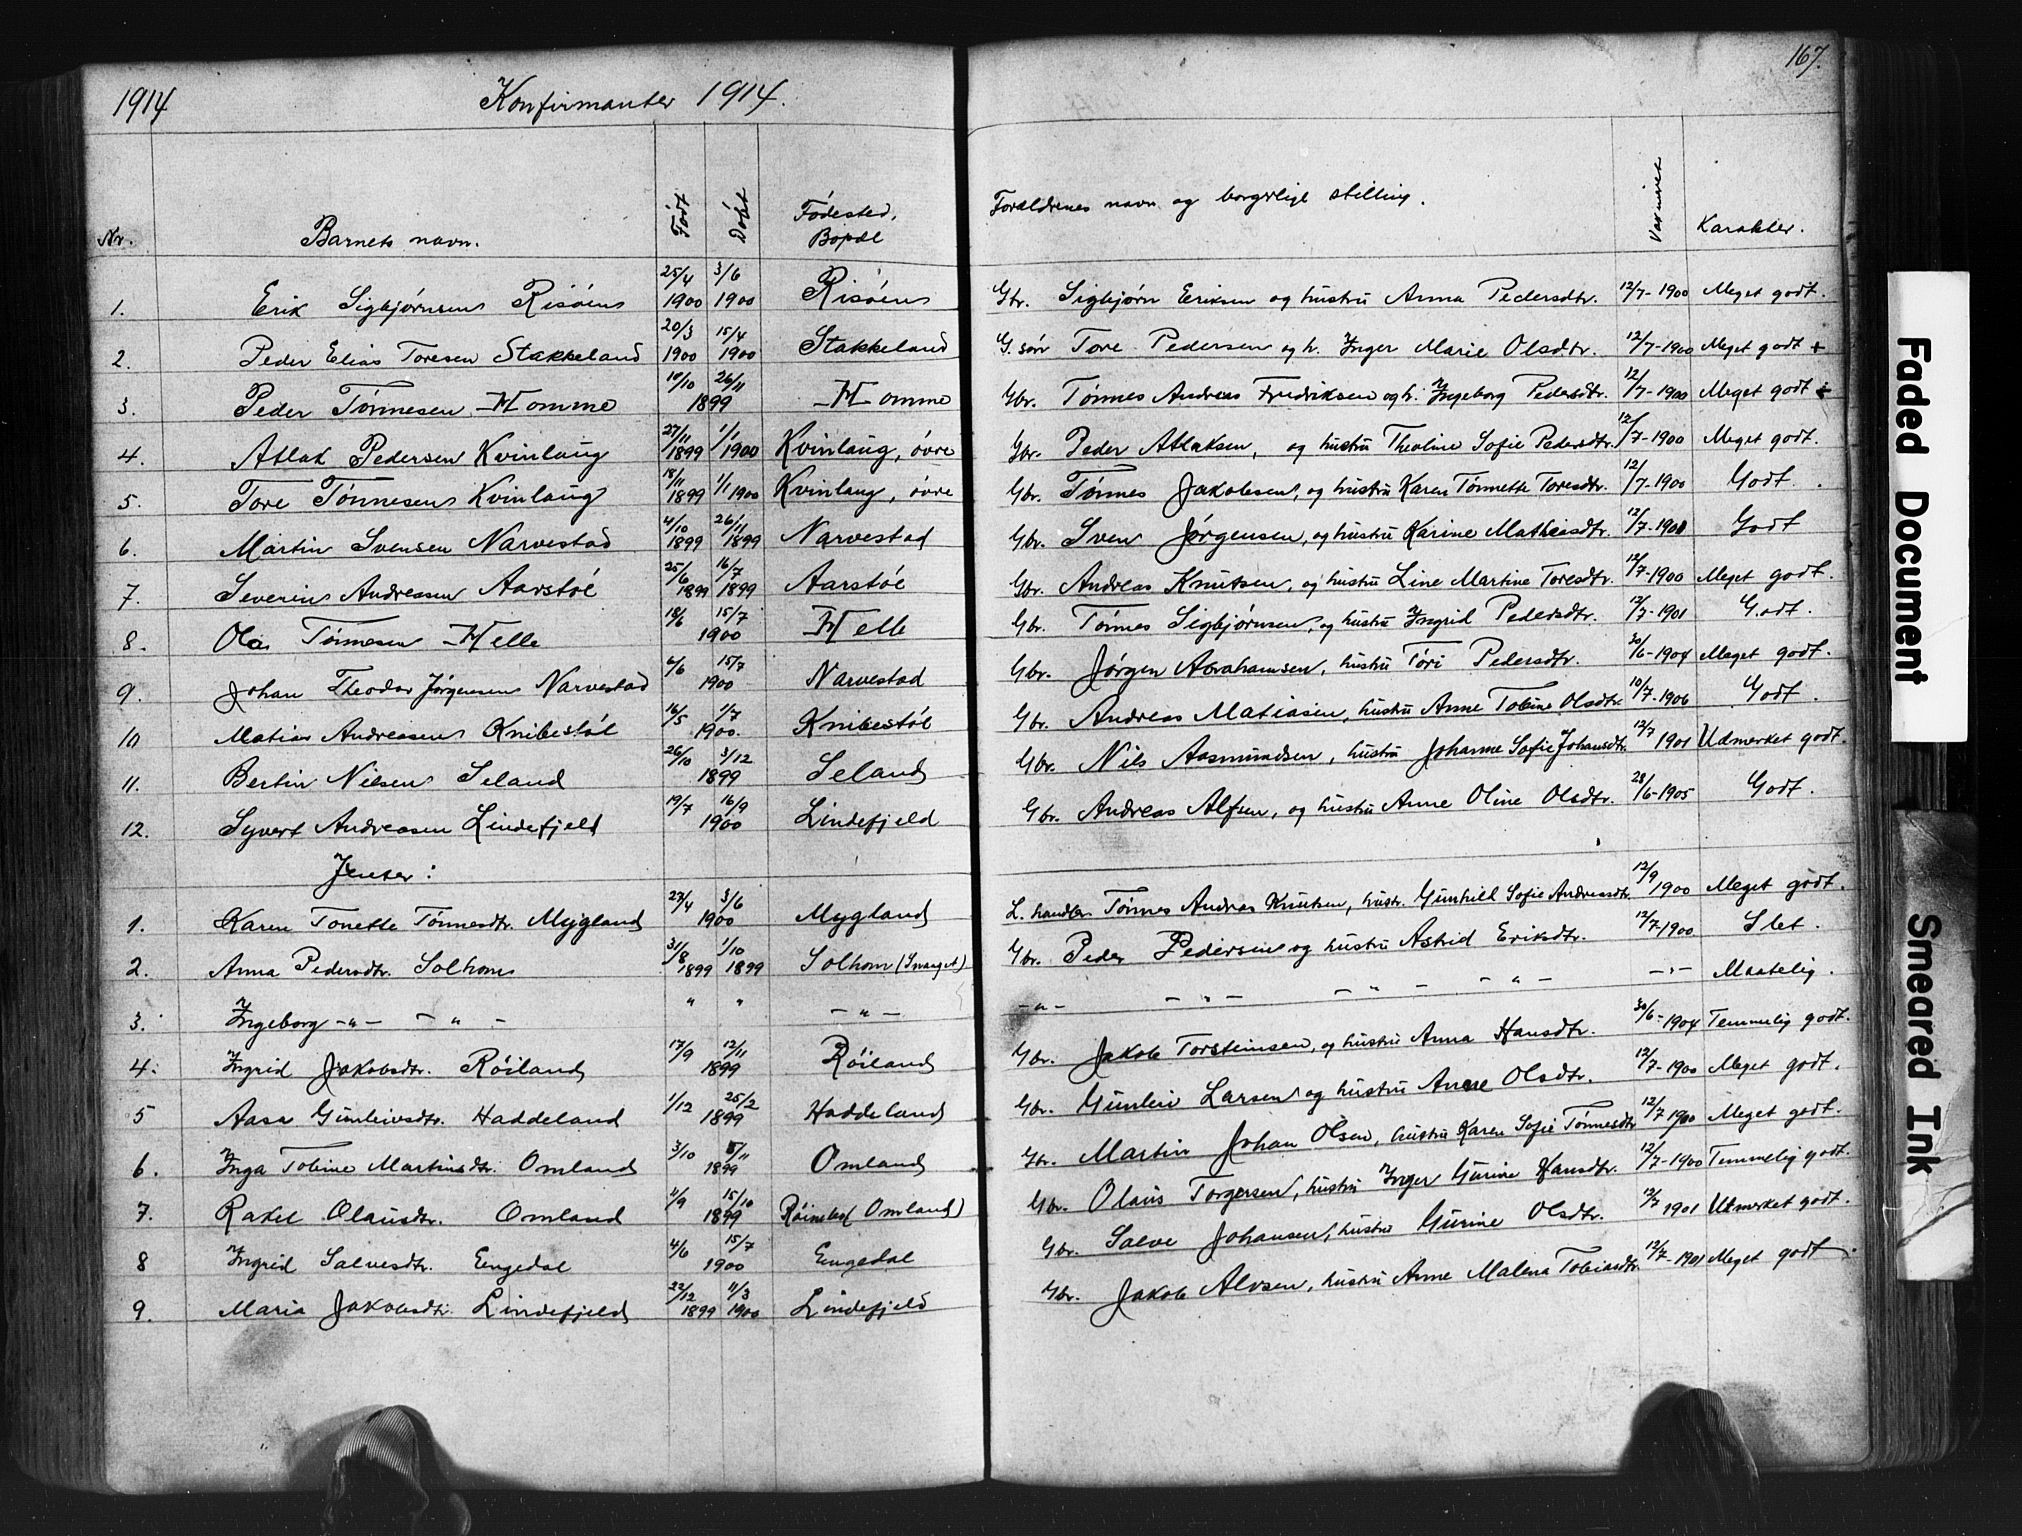 1914 Konfirmanter 1914. 167.
Nr. Barnets navn. Født Døbt Fødested, Bopæl Forældrenes navn og borgerlige stilling. Vaksineret Karakter.
1. Erik Sigbjørnsen Risøen 25/4 1900 3/6 1900 Risøen Gbr. Sigbjørn Eriksen og hustru Anna Pedersdtr. 12/7-1900 Meget godt.
2 Peder Elias Toresen Stakkeland 20/3 1900 15/4 1900 Stakkeland G. søn Tore Pedersen og h. Inger Marie Olsdtr. 12/7-1900 Meget godt +
3. Peder Tønnesen Homme 10/10 26/11 1899 Homme Gbr. Tønnes Andreas Fredriksen og h. Ingeborg Pedersdtr. 12/7-1900 Meget godt ÷
4. Atlak Pedersen Kvinlaug 27/11 1899 1/1 1900 Kvinlaug, øvre Gbr. Peder Atlaksen, og hustru Theoline Sofie Pedersdtr. 12/7-1900 Meget godt.
5. Tore Tønnesen Kvinlaug 18/11 1899 1/1 1900 Kvinlaug, øvre Gbr. Tønnes Jakobsen, og hustru Karen Tønnette Toresdtr. 12/7-1900 Godt.
6. Martin Svensen Narvestad 4/10 1899 26/11 1899 Narvestad Gbr. Sven Jørgensen, og hustru Karine Mathiasdtr. 12/7-1901 Godt
7. Severin Andreasen Aarstøl 25/6 1899 16/7 1899 Aarstøl Gbr. Andreas Knutsen, og hustru Line Martine Toresdtr. 12/7-1900 Meget godt.
8. Ola Tønnesen Helle 18/6 15/7 1900 Helle Gbr. Tønnes Sigbjørnsen, og hustru Ingrid Pedersdtr. 12/7-1901 Godt.
9. Johan Theodor Jørgensen Narvestad 6/6 15/7 1900 Narvestad Gbr. Jørgen Abrahamsen, hustru Tøri Pedersdtr. 30/6-1904 Meget godt.
10 Matias Andreasen Knibestøl 16/5 1/7 1900. Knibestøl Gbr. Andreas Matiasen, hustru Anne Tobine Olsdtr. 10/7-1906 Godt.
11. Bertin Nilsen Seland 26/10 3/12 1899 Seland Gbr. Nils Aasmundsen, hustru Johanne Sofie Johansdtr. 12/7 1901 Udmerket godt.
12. Syvert Andreasen Lindefjeld 19/7 16/9 1900 Lindefjeld Gbr. Andreas Alfsen, og hustru Anne Oline Olsdtr. 28/6-1905 Godt.
Jenter:
1. Karen Tonette Tønnesdtr. Mygland 27/4 3/6 1900 Mygland L. handler Tønnes Andreas Knutsen, hustr. Gunhild Sofie Andreasdtr. 12/9 1900 Meget godt.
2. Anna Pedersdtr. Solhom 31/8 1899 1/10 1899 Solhom (Svaget) Gbr. Peder Pedersen og hustru Astrid Eriksdtr. 12/7-1900 Slet.
3. Ingeborg -"- - " - " " - " - -"- - " - - " - - " - -"- Maatelig.
4. Ingrid Jakobsdtr. Røiland 17/9 12/11 1899 Røiland Gbr. Jakob Torsteinsen, og hustru Anna Hansdtr. 30/6-1904 Temmelig godt.
5 Aasa Gunleivsdtr. Haddeland 1/12 25/2 1899 Haddeland Gbr. Gunleiv Larsen og hustru Anne Olsdtr. 12/7-1900 Meget godt.
6. Inga Tobine Martinsdtr. Omland 3/10 5/11 1899 Omland Gbr. Martin Johan Olsen, hustru Karen Sofie Tønnesdtr. 12/7 1900 Meget godt.
7. Rakel Olausdtr. Omland 11/9 15/10 1899 Omland) Gbr. Olaus Torgersen, hustru Inger Gurine Hansdtr. 12/7-1900 Temmelig godt.
8 Ingrid Salvesdtr. Eengedal 4/6 15/7 1900 Eengedal Gbr. Salve Johansen, hustru Gurine Olsdtr. 12/7 1901 Udmerket godt.
9. Maria Jakobsdtr. Lindefjeld 22/12 1899 11/3 1900 Lindefjeld Gbr. Jakob Alvsen, hustru Anne Malena Tobiasdtr. 12/7-1901 Meget godt.
Faded Document
Smeared Ink